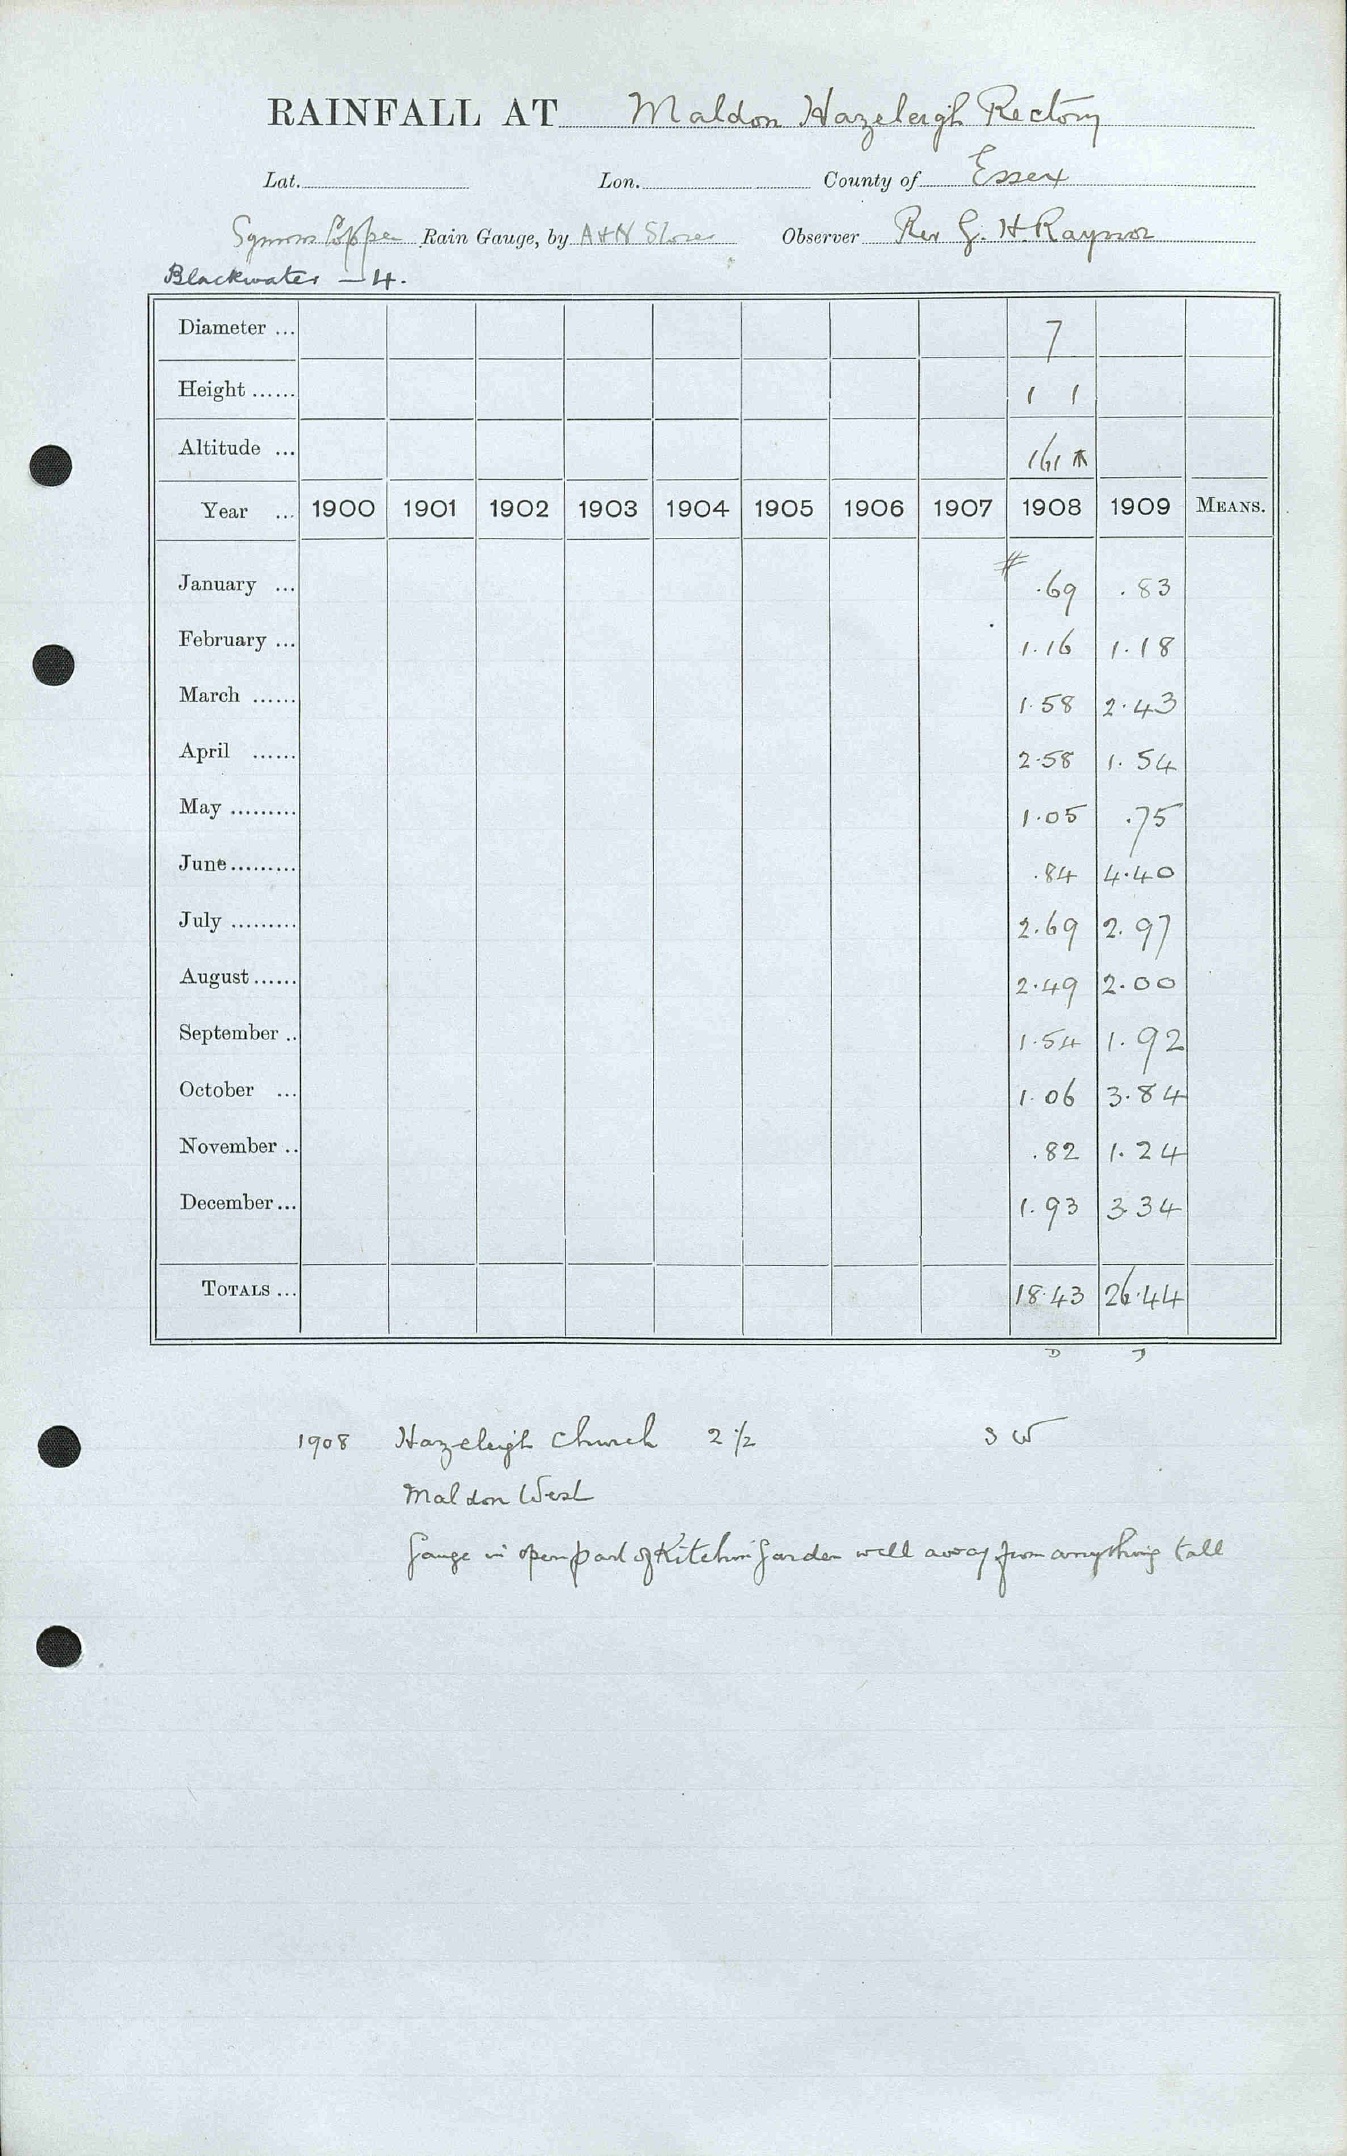 RAINFALL AT Maldon Hazeleigh Rectory
Lat. Lon. County of Essex
Symons Copper Rain Gauge, by A & N Stores Observer Rev G. H. Raynor
Blackwater — 4.
Diameter ... 7
Height ...... 1 1
Altitude ... 161
Year ... 1900 1901 1902 1903 1904 1905 1906 1907 1908 1909 MEANS.
#
January ... .69 .83
February ... 1.16 1.18
March ...... 1.58 2.43
April ...... 2.58 1.54
May ......... 1.05 .75
June ......... .84 4.40
July ......... 2.69 2.97
August ...... 2.49 2.00
September .. 1.54 1.92
October ... 1.06 3.84
November .. .82 1.24
December ... 1.93 3.34
TOTALS ... 18.43 26.44
1908 Hazeleigh Church 2 1/2 S W
Maldon West
Gauge in open part of Kitchen Garden well away from anything tall